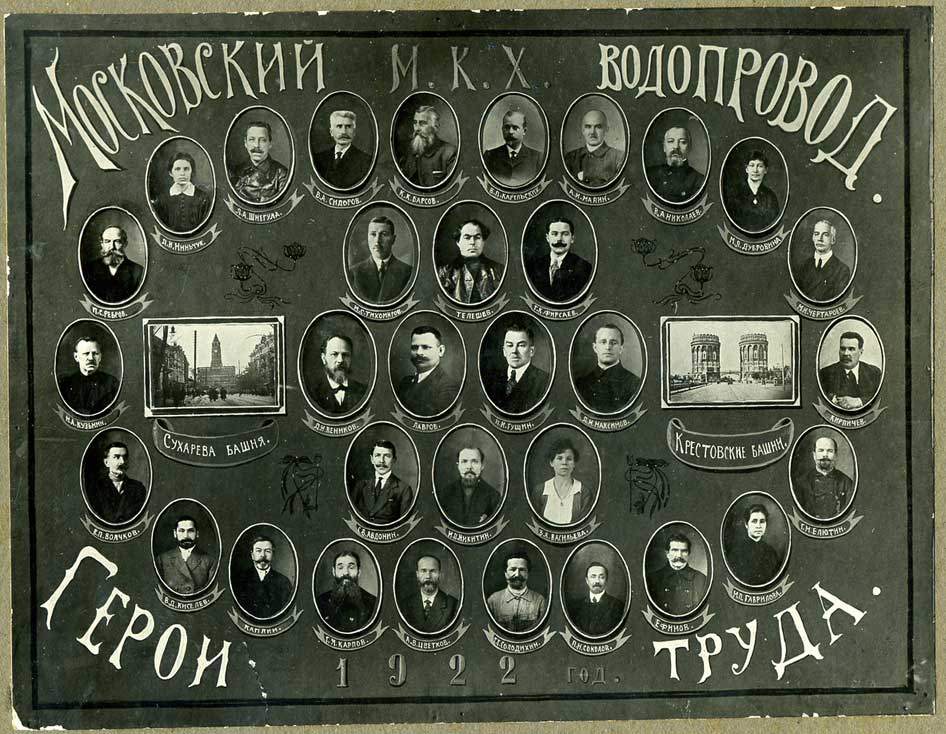 МОСКОВСКИЙ М.К.Х. ВОДОПРОВОД.
Д.И.МИНЬЧУК.
А.ШНЕГУЛА.
В.А.СИДОРОВ.
К.А.БАРСОВ.
В.П.КАРЕЛЬСКИЙ
А.И.МАЛИН.
А.НИКОЛАЕВ.
М.В.ДУБРОВИНА
РЕБРОВ.
М.С.ТИХОМИРОВ.
ТЕЛЕШЕВ.
Г.К.ФИРСАЕВ.
ЧЕРТАРОЕВ.
И.А.КУЗЬМИН.
Д.Н.ВЕНИКОВ.
ЛАВРОВ.
Н.И.ГУЩИН.
Д.М.МАКСИМОВ.
КИРПИЧЕВ.
СУХАРЕВА БАШНЯ.
КРЕСТОВСКИЕ БАШНИ.
В.П.ВОЛЧКОВ.
АВДОНИН.
НИКИТИН.
ВАСИЛЬЕВА.
С.И.ЕЛЮТИН.
В.Д.КИСЕЛЕВ.
КАПЛИН.
С.И.КАРПОВ.
А.В.ЦВЕТКОВ.
СОЛОДИХИН.
П.Н.СОКОЛОВ.
ЕФИМОВ.
И.П.ГАВРИЛОВА.
ГЕРОИ ТРУДА.
1922 ГОД.